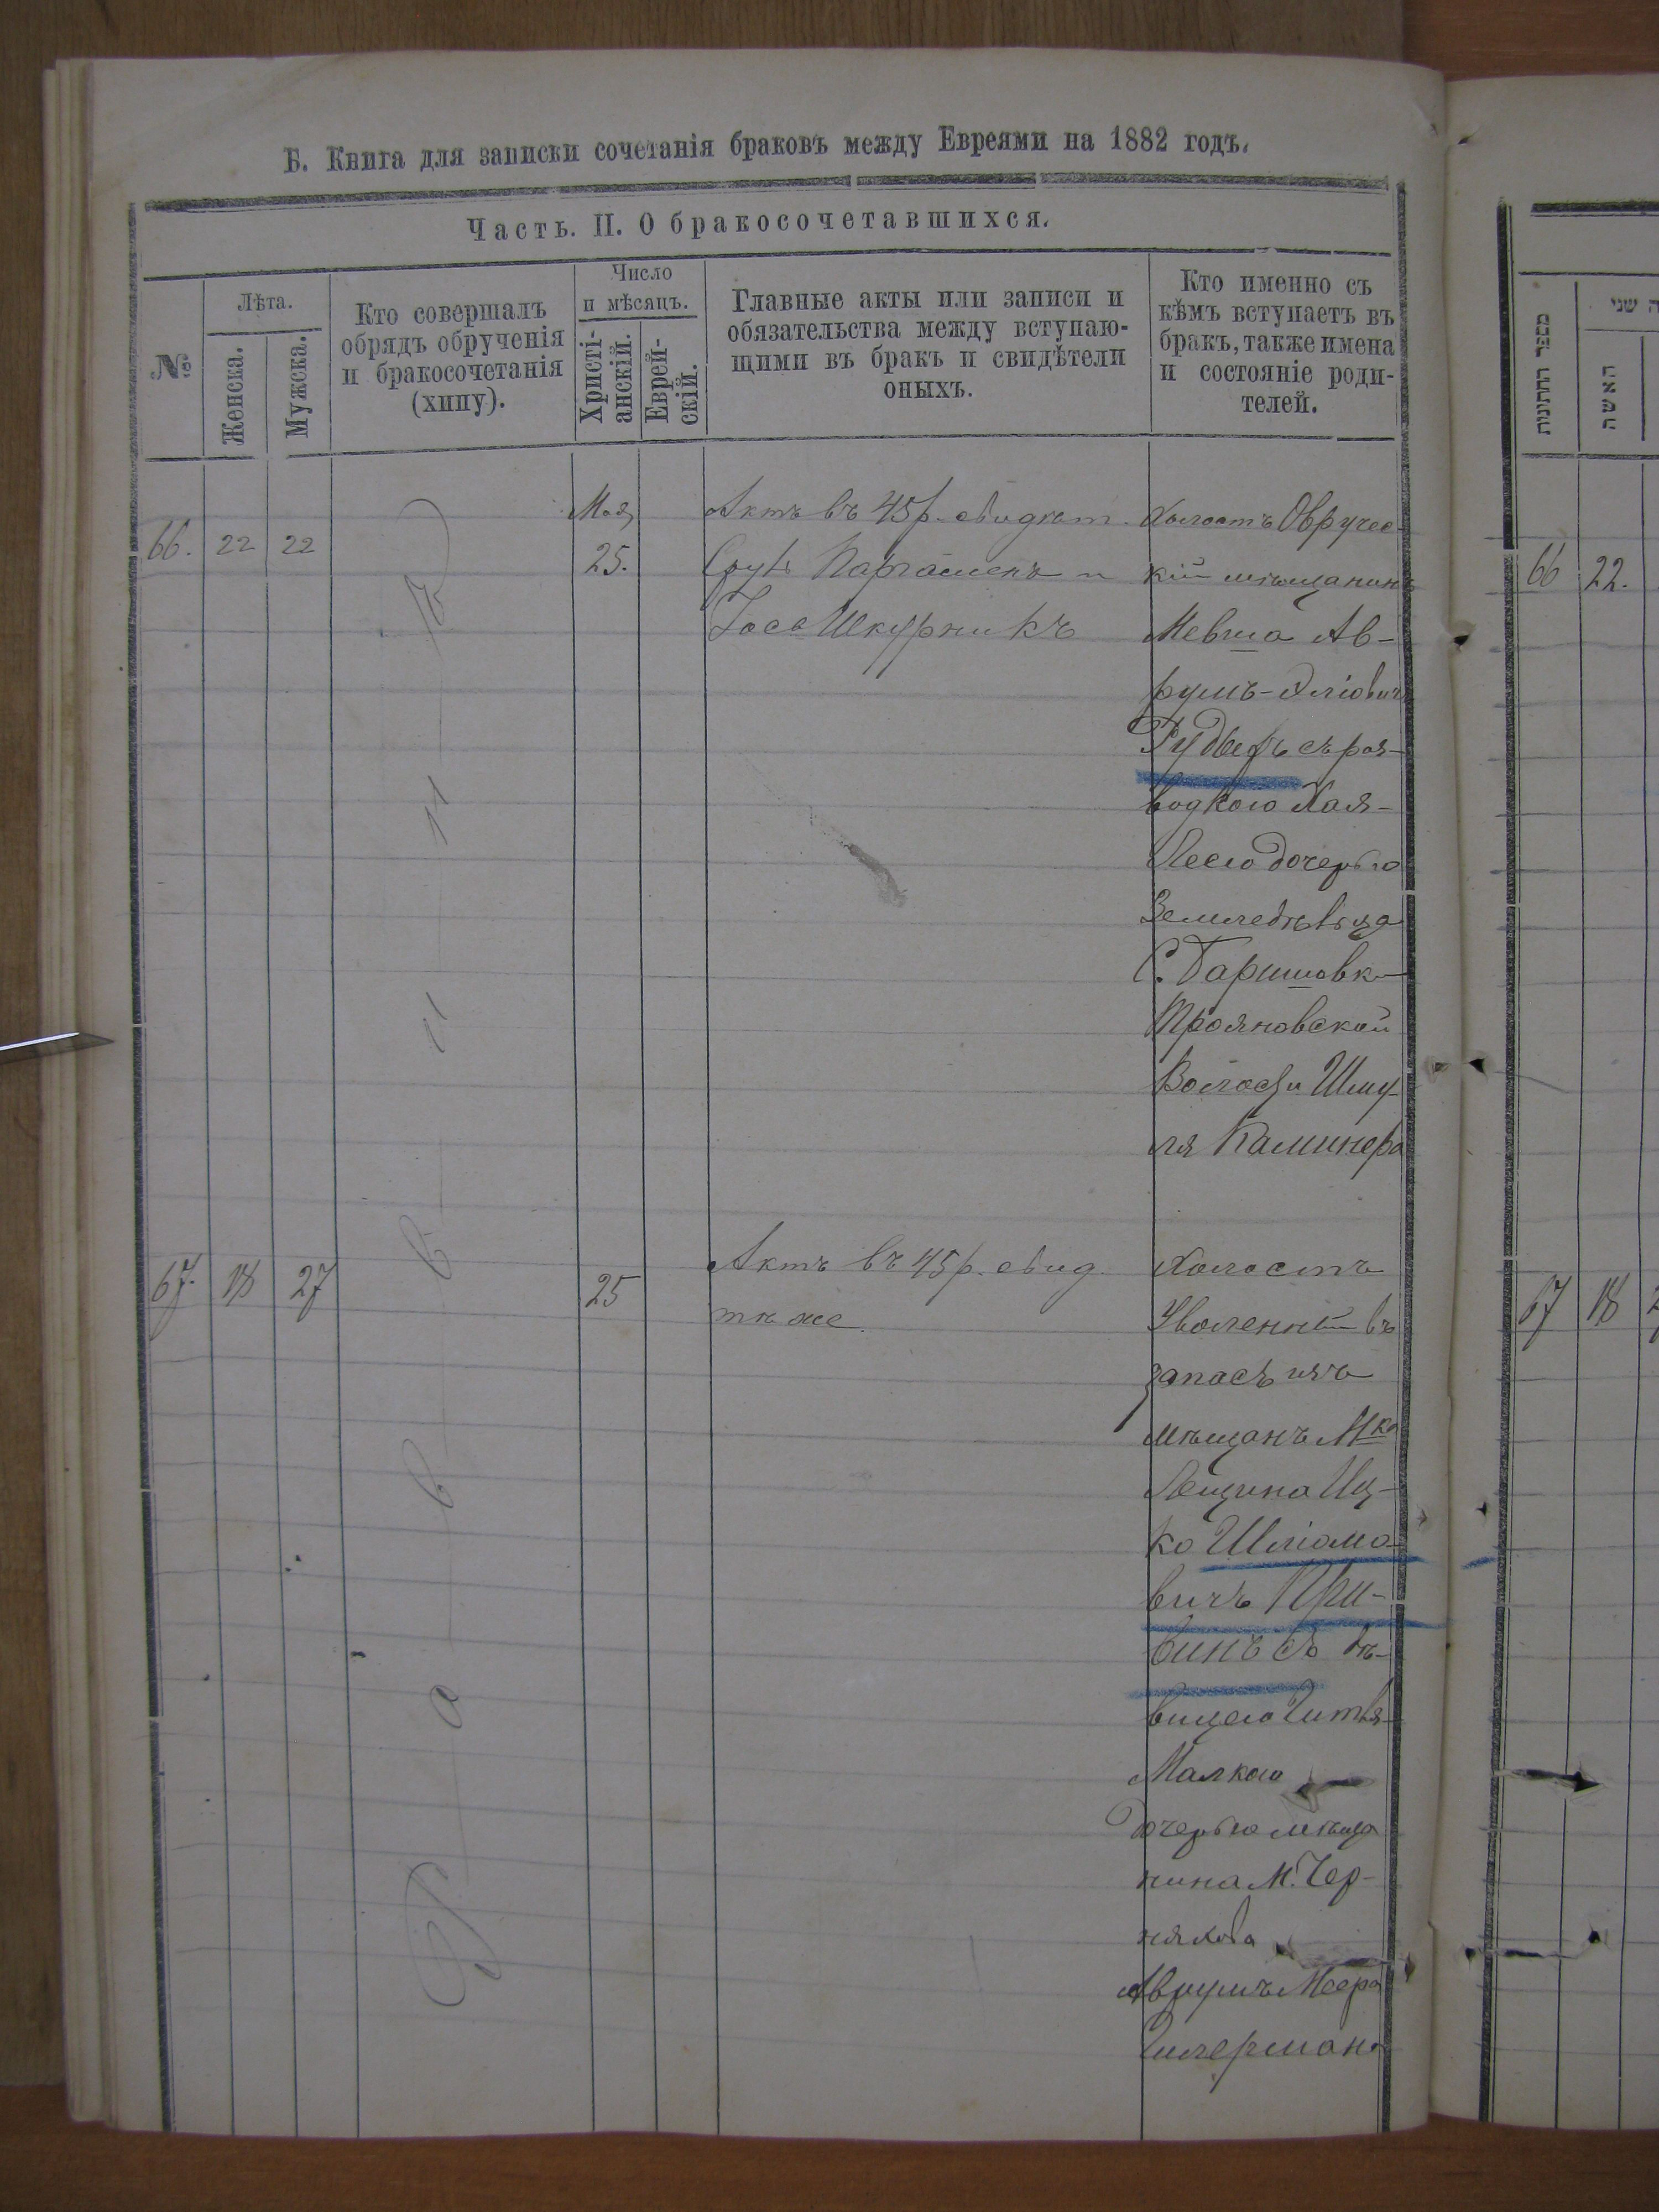 Б. Книга для записки сочетанія браковъ между Евреями на 1882 годъ.
Часть. II. О бракосочетавшихся.
№
Лѣта.
Женска.
Мужска.
Кто совершалъ
обрядъ обрученія
и бракосочетанія
(хипу).
Число
и мѣсяцъ.
Христі-
анскій.
Еврей-
скій.
Главные акты или записи и
обязательства между вступаю-
щими въ бракъ и свидѣтели
оныхъ.
Кто именно съ
кѣмъ вступаетъ въ
бракъ, также имена
и состояніе роди-
телей.
66.
22
22
Мая
25.
Актъ въ 45 р. свидѣт.
и
Іось Шкурникъ
Холостъ Овручс-
кій мѣщанинъ
Мевша Ав-
румъ-Эліовичъ
Рудыфъ съ раз-
водкою Хая-
Лею дочерью
Земледѣльца
С. Барашовки
Трояновской
Волости Шму-
ля Каминера
67.
18
27
25
Актъ въ 45 р. свид.
тѣ же.
Холостъ
Уволенный въ
запасъ изъ
мѣщанъ Мка
Лещина Иц-
ко Шліомо-
вичъ При-
винъ съ дѣ-
вицею Гитля-
Малкою
дочерью мѣща
нина М. Чер-
няхова
Аврумъ Меера
Гилермана
Раввинъ
מספר החתונות
האשה
שני
66
22.
67
18